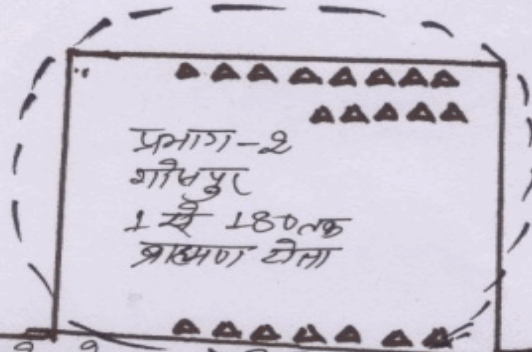 प्रभाग-2
गोखपुर
1 से 180 तक
ब्राह्मण टोला